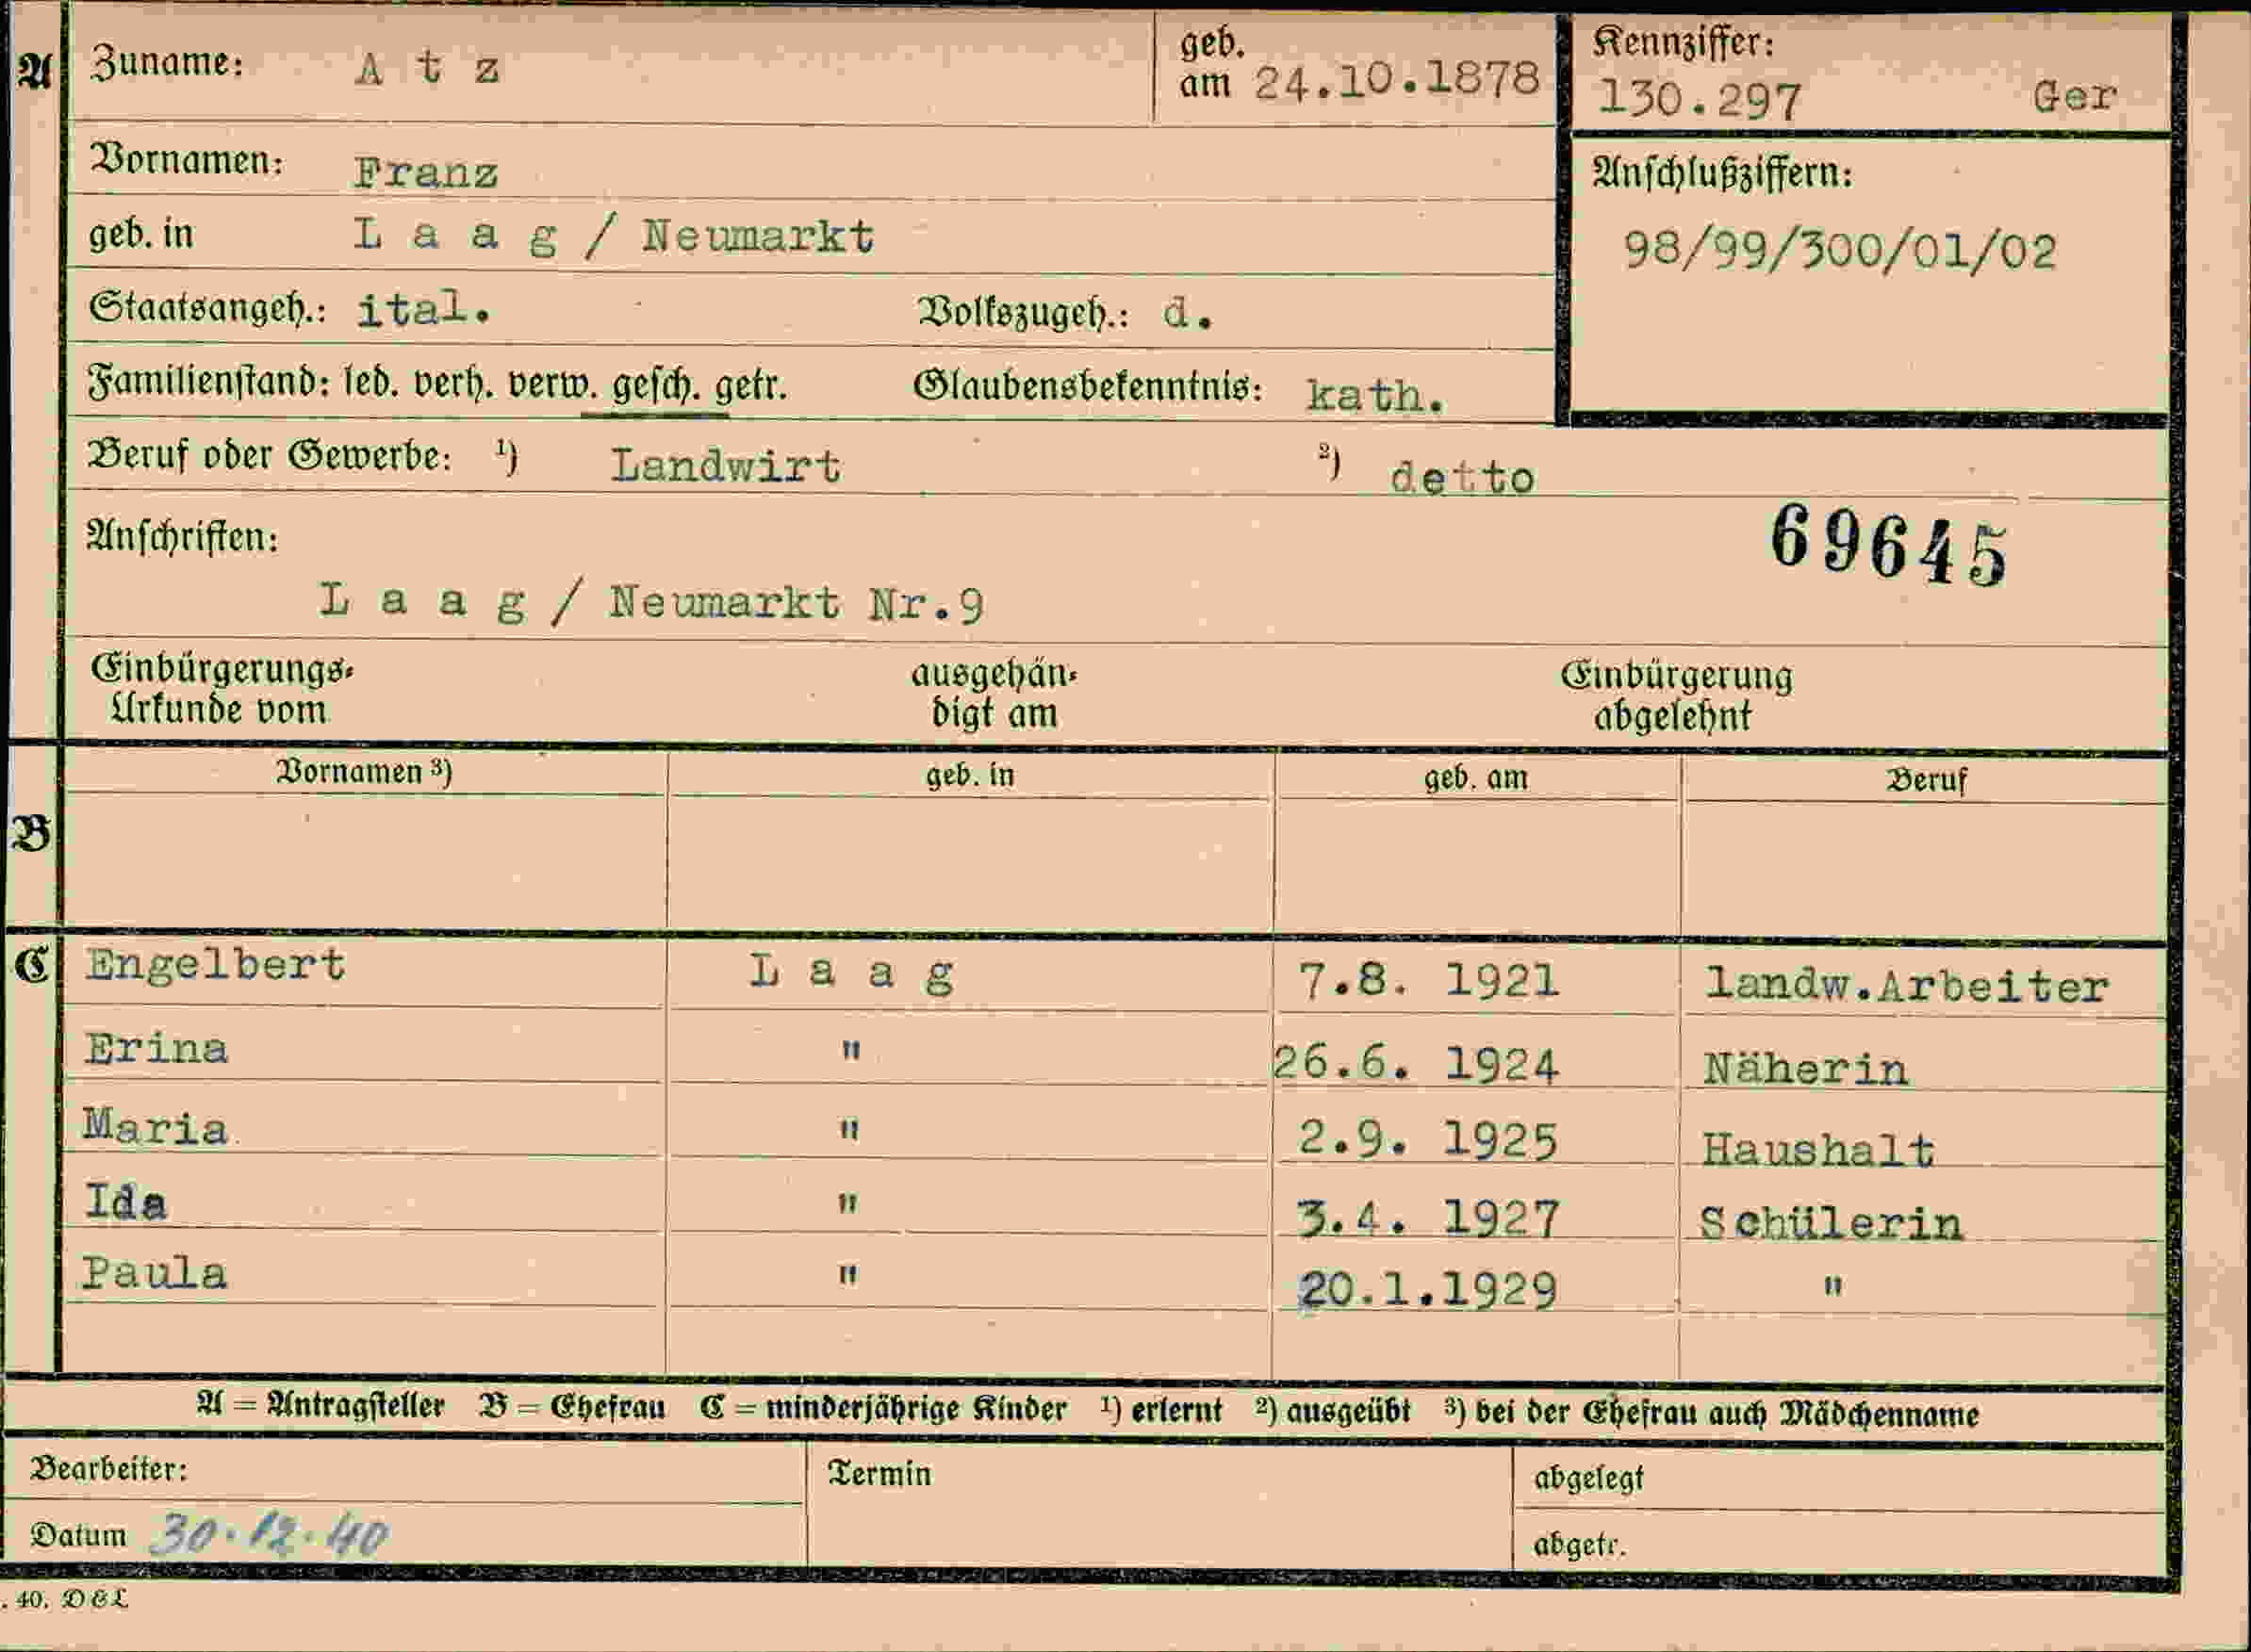 A Zuname: A t z geb. am 24.10.1878 Kennziffer: 130.297 Ger
Vornamen: Franz Anschlußziffern:
geb. in L a a g / Neumarkt 98/99/300/01/02
Staatsangeh.: ital. Volkszugeh.: d.
Familienstand: led. verh. verw. gesch. getr. Glaubensbekenntnis: kath.
Beruf oder Gewerbe: ¹) Landwirt ²) detto
Anschriften: 69645
L a a g / Neumarkt Nr.9
Einbürgerungs- ausgehän- Einbürgerung
Urkunde vom digt am abgelehnt
B Vornamen ³) geb. in geb. am Beruf
C Engelbert L a a g 7.8. 1921 landw.Arbeiter
Erina " 26.6. 1924 Näherin
Maria " 2.9. 1925 Haushalt
Ida " 3.4. 1927 Schülerin
Paula " 20.1.1929 "
A = Antragsteller B = Ehefrau C = minderjährige Kinder ¹) erlernt ²) ausgeübt ³) bei der Ehefrau auch Mädchenname
Bearbeiter: Termin abgelegt
Datum 30.12.40 abgetr.
. 40. D & L